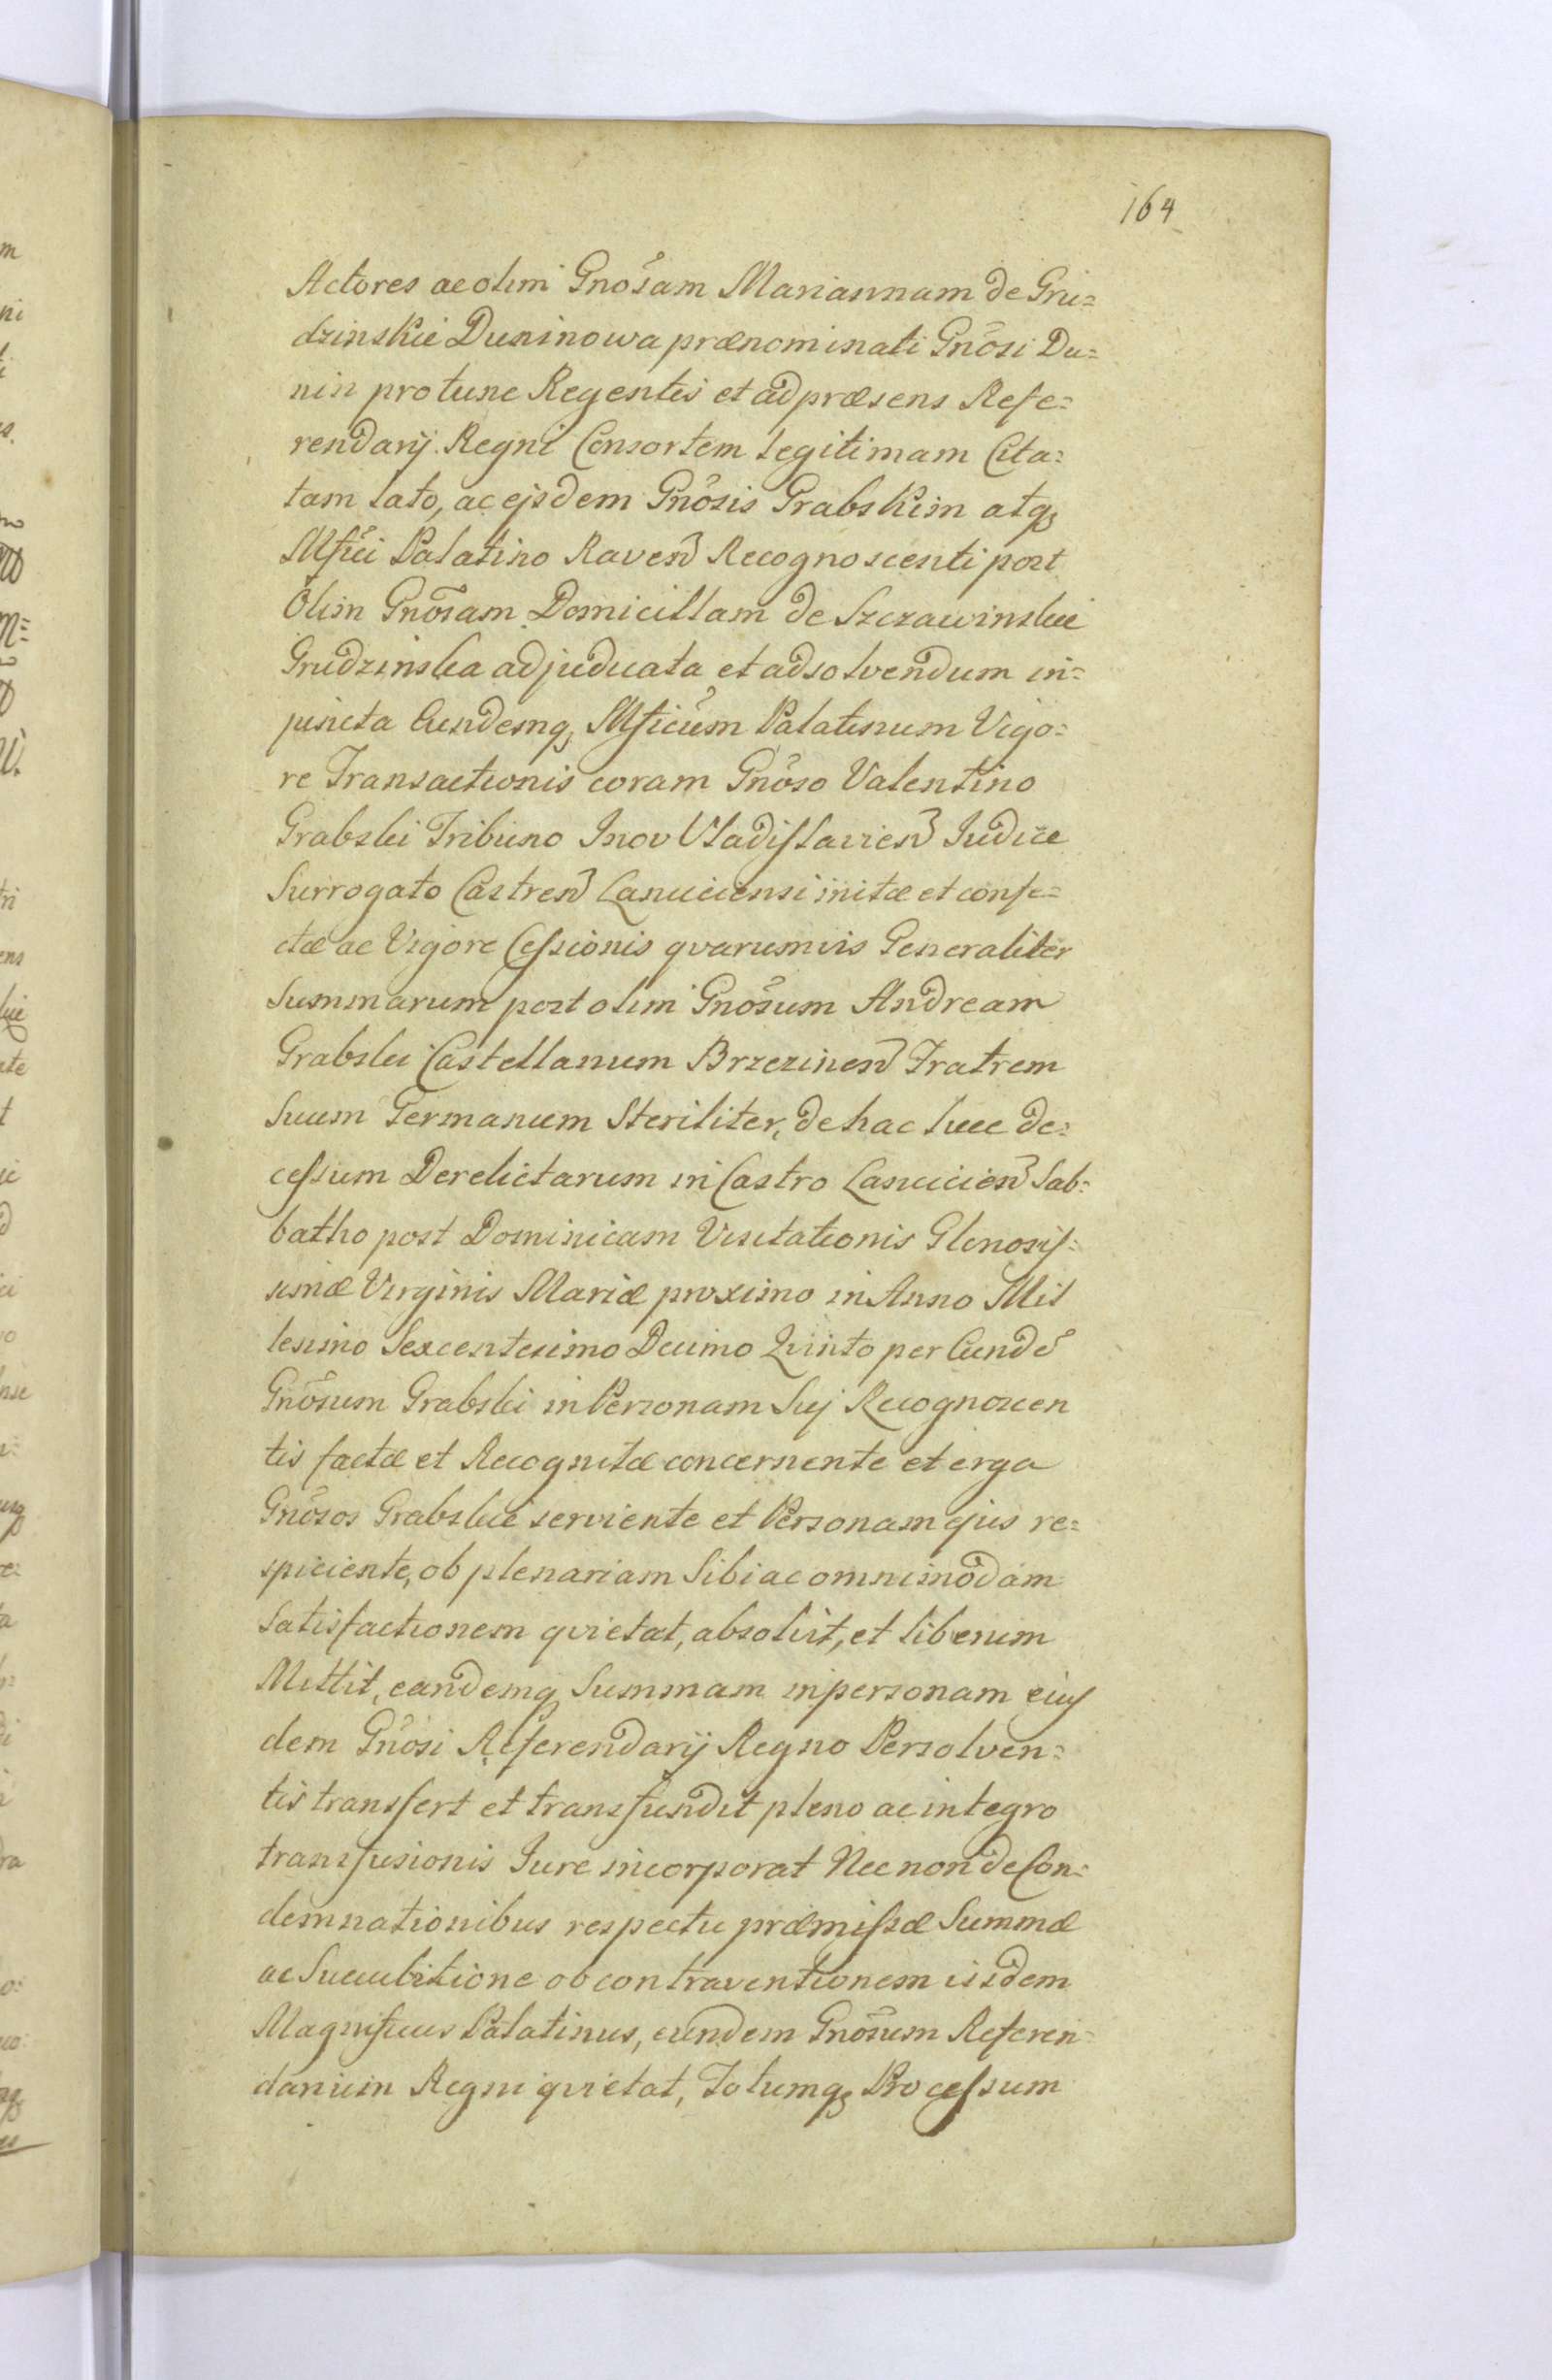 164
Actores ac olim Gnosam Mariannam de Gru=
dzinskie Duninowa prænominati Gnosi Du=
nin pro tunc Regentis et ad præsens Refe=
rendarij Regni Consortem legitimam Cita=
tam lato, ac ejsdem Gnosis Grabskim atq;
Mfici Palatino Raven Recognoscenti post
Olim Gnosam Domicillam de Szczawinskie
Grudzinska adjudicata et ad solvendum in=
juncta Eundemq; Mficum Palatinum Vigo=
re Transactionis coram Gnoso Valentino
Grabski Tribuno Inov Vladislavien Judice
Surrogato Castren Lanciciensi initæ et confe=
ctæ ac Vigore Cessionis qvarumvis Generaliter
Summarum post olim Gnosum Andream
Grabski Castellanum Brzezinen Fratrem
Suum Germanum Steriliter, de hac luce de=
cessum Derelictarum in Castro Lancicien Sab=
batho post Dominicam Visitationis Glonosis=
simæ Virginis Mariæ proximo in Anno Mil
lesimo Sexcentesimo Decimo Qvinto per Eunde
Gnosum Grabski in Personam Suj Recognoscen
tis factæ et Recognitæ concernente et erga
Gnosos Grabskie serviente et Personam ejus re=
spiciente, ob plenariam Sibi ac omnimodam
Satisfactionem qvietat, absolvit, et liberum
Mittit, eandemq; Summam in personam eius
dem Gnosi Referendarij Regno Persolven=
tis transfert et transfundit pleno ac integro
transfusionis Jure incorporat Nec non de Con=
demnationibus respectu præmissæ Summæ
ac Succubitione ob contraventionem iisdem
Magnificus Palatinus, eundem Gnosum Referen=
darium Regni qvietat, Totumq; Processum